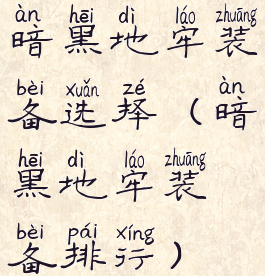 àn hēi dì láo zhuāng
暗黑地牢装
bèi xuǎn zé àn
备选择（暗
hēi dì láo zhuāng
黑地牢装
bèi pái xíng
备排行）